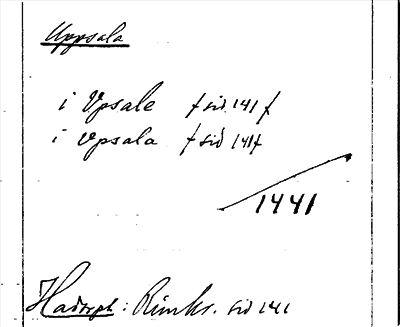 Uppsala
i Vpsale f sid. 141 f
i Vpsala f sid 141 f
1441
Hadorph: Rimkr. sid 141